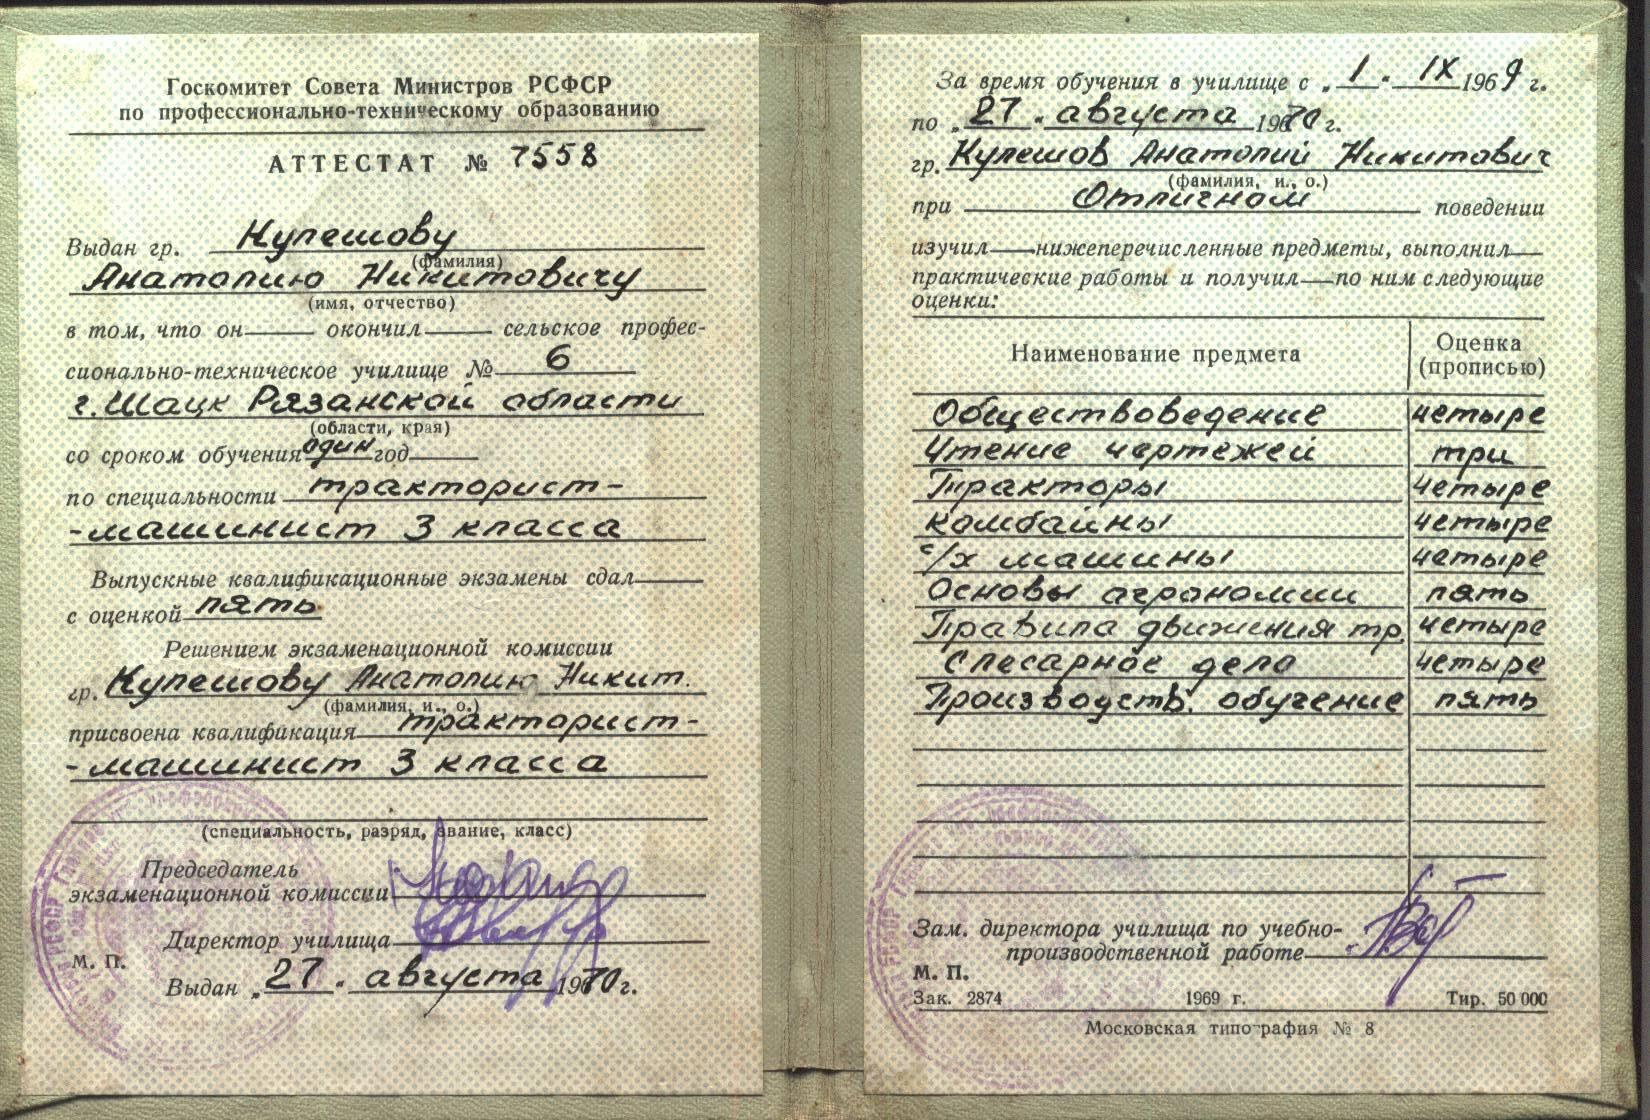 Госкомитет Совета Министров РСФСР
по профессионально-техническому образованию
АТТЕСТАТ № 7558
Выдан гр. Кулешову
(фамилия)
Анатолию Никитовичу
(имя, отчество)
в том, что он окончил сельское профес-
сионально-техническое училище № 6
г. Шацк Рязанской области
(области, края)
со сроком обучения один год
по специальности тракторист-
-машинист 3 класса
Выпускные квалификационные экзамены сдал
с оценкой пять
Решением экзаменационной комиссии
гр. Кулешову Анатолию Никит.
(фамилия, и., о.)
присвоена квалификация тракторист-
-машинист 3 класса
(специальность, разряд, звание, класс)
Председатель
экзаменационной комиссии
Директор училища
М. П.
Выдан „27" августа 1970 г.
За время обучения в училище с „1" IX 1969 г.
по „27" августа 1970 г.
гр. Кулешов Анатолий Никитович
(фамилия, и., о.)
при Отличном поведении
изучил нижеперечисленные предметы, выполнил
практические работы и получил по ним следующие
оценки:
Наименование предмета Оценка (прописью)
Обществоведение четыре
Чтение чертежей три
Тракторы четыре
комбайны четыре
с/х машины четыре
Основы аграномии пять
Правила движения тр. четыре
Слесарное дело четыре
Производств. обучение пять
Зам. директора училища по учебно-
производственной работе
М. П.
Зак. 2874 1969 г. Тир. 50 000
Московская типография № 8